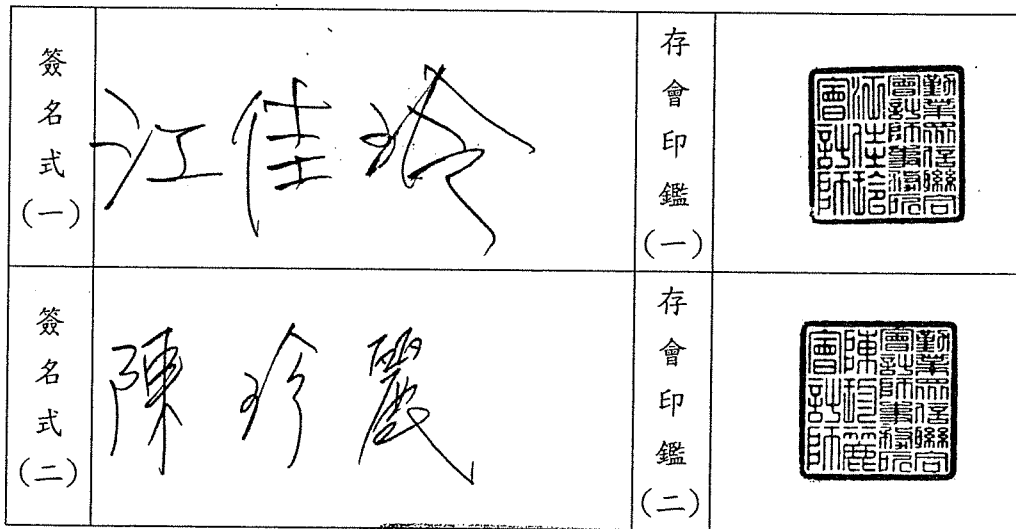 簽名式(一)
江佳玲
存會印鑑(一)
勤業眾信聯合
會計師事務所
江佳玲
會計師
簽名式(二)
陳珍麗
存會印鑑(二)
勤業眾信聯合
會計師事務所
陳珍麗
會計師